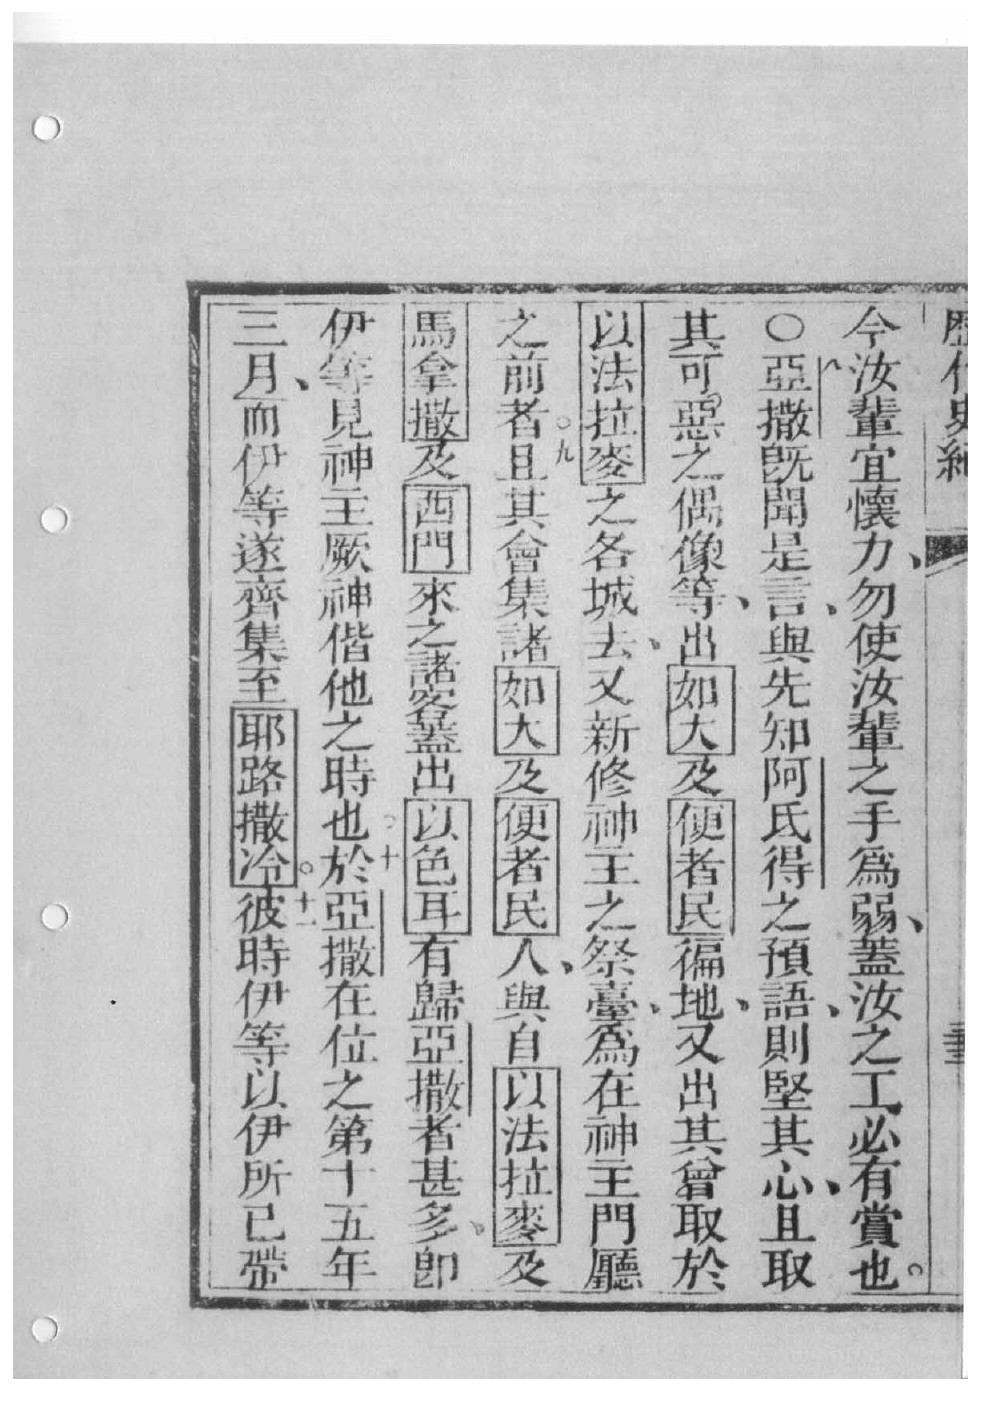 歷代史紀
今汝輩宜懷力、勿使汝輩之手爲弱、蓋汝之工必有賞也。
○八亞撒旣聞是言、與先知阿氏得之預語、則堅其心、且取
其可惡之偶像等、出如大及便者民徧地、又出其曾取於
以法拉麥之各城去、又新修神主之祭臺、爲在神主門廳
之前者。九且其會集諸如大及便者民人、與自以法拉麥及
馬拿撒及西門來之諸客、蓋出以色耳有歸亞撒者甚多、卽
伊等見神主厥神偕他之時也。十於亞撒在位之第十五年
三月、而伊等遂齊集至耶路撒冷。十一彼時伊等以伊所已帶